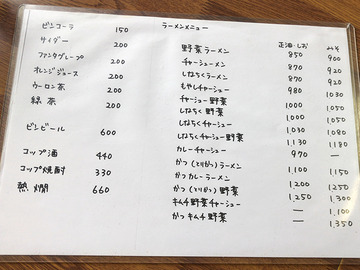 ビンコーラ 150
サイダー 200
ファンタグレープ 200
オレンジジュース 200
ウーロン茶 200
緑茶 200
ビンビール 600
コップ酒 440
コップ焼酎 330
熱燗 660
ラーメンメニュー
正油・しお
野菜ラーメン 850 900
チャーシューメン 870 920
しなちくラーメン 870 920
もやしチャーシュー 980 1030
チャーシュー野菜 1000 1050
しなちく野菜 1000 1050
しなちくチャーシュー 1030 1080
しなちくチャーシュー野菜 1130 1180
カレーチャーシュー 970 —
かつ(とりかつ)ラーメン 1,100 1,150
かつカレーラーメン 1,200 1,250
かつ(とりかつ)野菜 1,250 1,300
キムチ野菜チャーシュー — 1,100
かつキムチ野菜 — 1,350